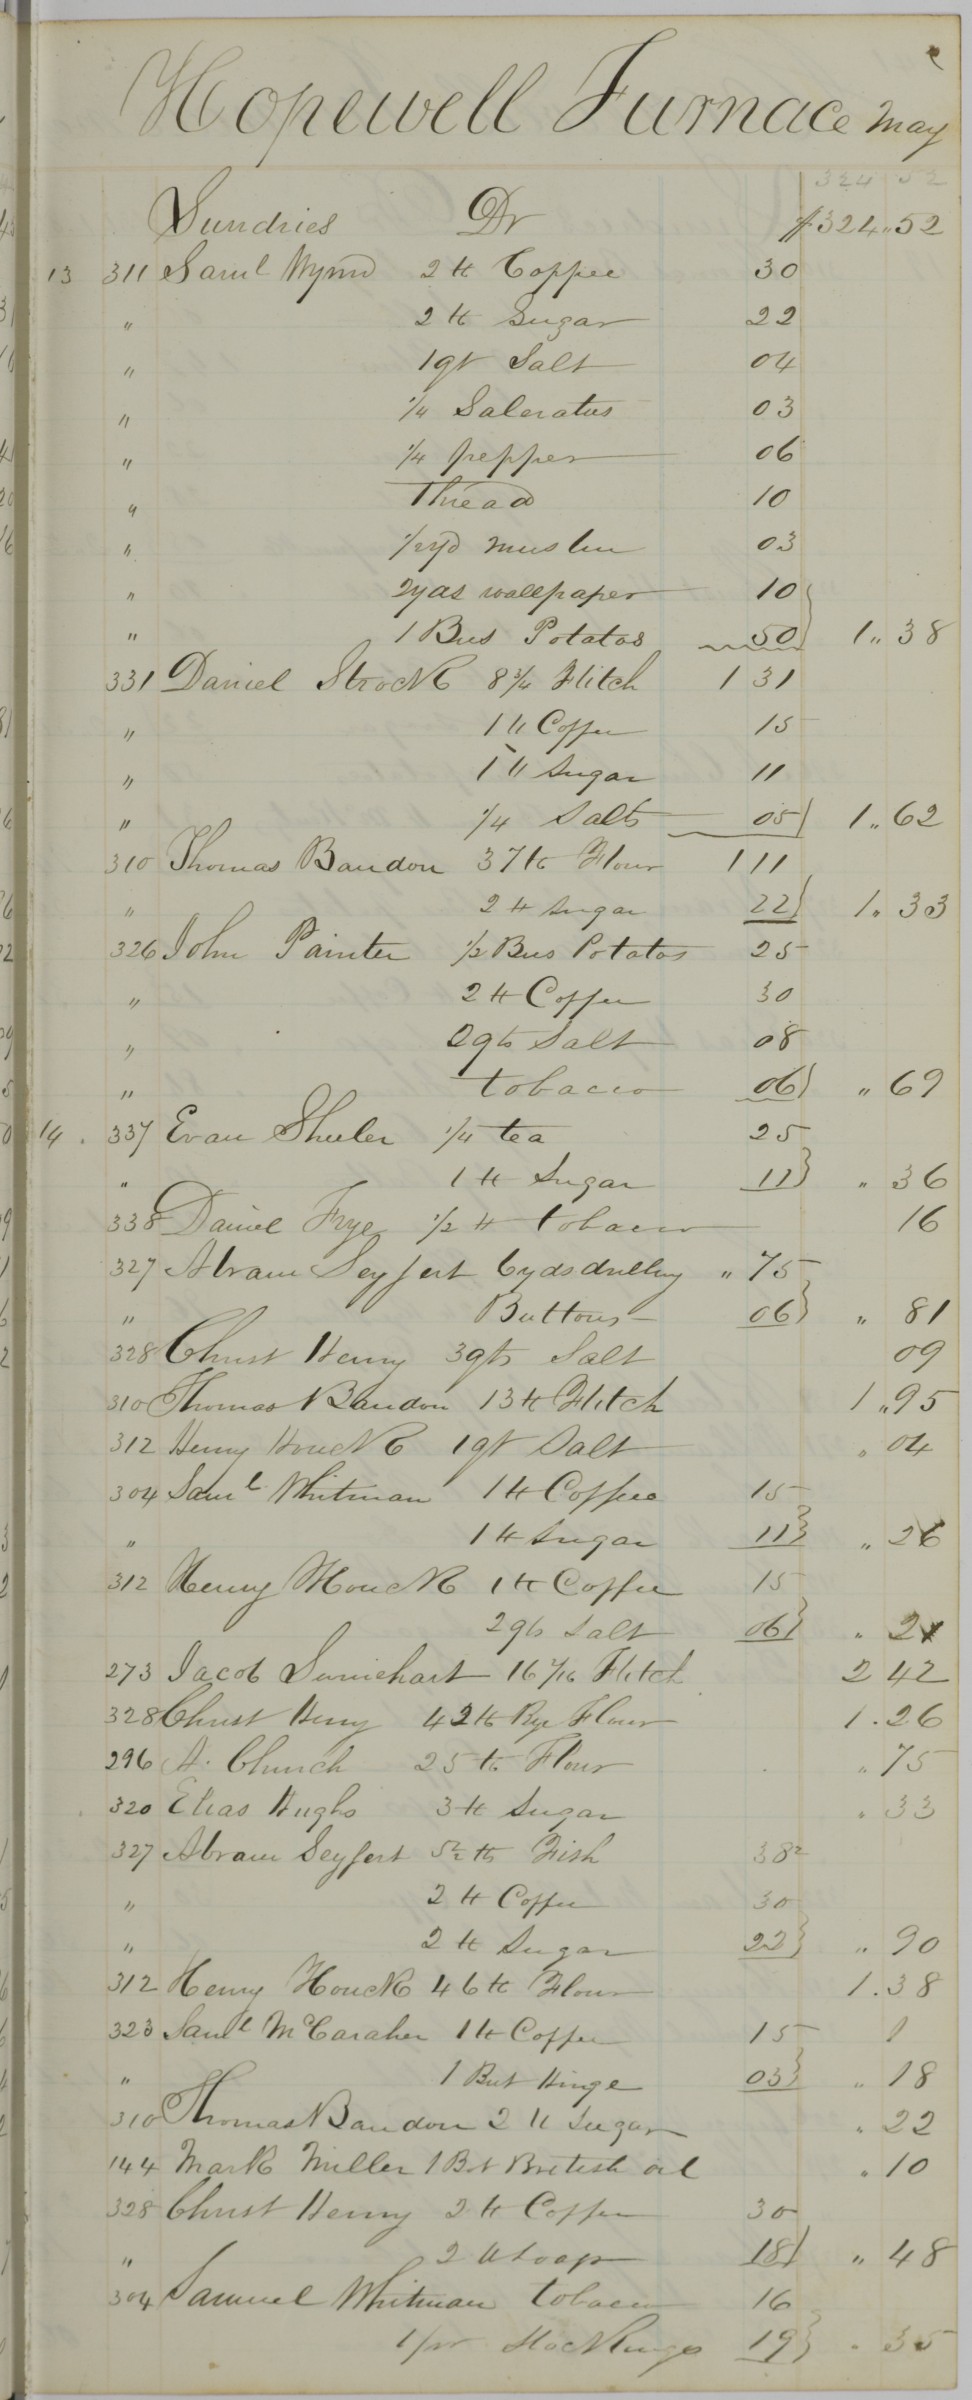 Hopewell Furnace May
324 52
Sundries Dr $324.52
13 311 Saml Wynn 2 ℔ Coffee 30
" 2 ℔ Sugar 22
" 1 qt Salt 04
" 1/4 Saleratus 03
" 1/4 pepper 06
" Thread 10
" 1/2 yd muslin 03
" 2 yds wallpaper 10
" 1 Bus Potatos 50 1 " 38
331 Daniel Strock 8 3/4 Flitch 1 31
" 1 ℔ Coffee 15
" 1 ℔ Sugar 11
" 1/4 Salts 05 1 " 62
310 Thomas Baudon 37 ℔ Flour 1 11
" 2 ℔ Sugar 22 1 " 33
326 John Painter 1/2 Bus Potatos 25
" 2 ℔ Coffee 30
" 2 qts Salt 08
" tobacco 06 " 69
14 . 337 Evan Sheeler 1/4 tea 25
" 1 ℔ Sugar 11 " 36
338 Daniel Frye 1/2 ℔ tobacco 16
327 Abram Seyfert 6 yds drilling " 75
" Buttons 06 " 81
328 Christ Henry 3 qts Salt 09
310 Thomas Baudon 13 ℔ Flitch 1 " 95
312 Henry Houck 1 qt Salt " 04
304 Saml Whitman 1 ℔ Coffee 15
" 1 ℔ Sugar 11 " 26
312 Henry Houck 1 ℔ Coffee 15
2 qts Salt 06 " 21
273 Jacob Lumehart 16 2/16 Flitch 2 42
328 Christ Henry 42 ℔ Rye Flour 1 . 26
296 A. Church 25 ℔ Flour " 75
320 Elias Hughs 3 ℔ Sugar " 33
327 Abram Seyfert 5 1/2 ℔ Fish 38 2
" 2 ℔ Coffee 30
" 2 ℔ Sugar 22 " 90
312 Henry Houck 46 ℔ Flour 1 . 38
323 Saml McCaraher 1 ℔ Coffee 15
" 1 But Hinge 03 " 18
310 Thomas Baudon 2 ℔ Sugar " 22
144 Mark Miller 1 Bot British oil " 10
328 Christ Henry 2 ℔ Coffee 30
" 2 ℔ Soap 18 " 48
304 Samuel Whitman tobacco 16
1 pr Stockings 19 " 35